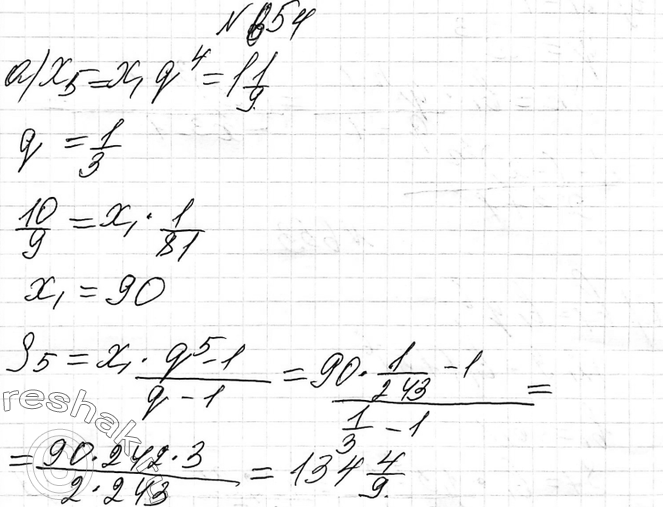 № 654
а) x₅ = x₁ q⁴ = 1 1/9
q = 1/3
10/9 = x₁ · 1/81
x₁ = 90
S₅ = x₁ · (q⁵ - 1)/(q - 1) = (90 · 1/243 - 1)/(1/3 - 1) =
= (90 · 242 · 3)/(2 · 243) = 134 4/9.
reshak.ru